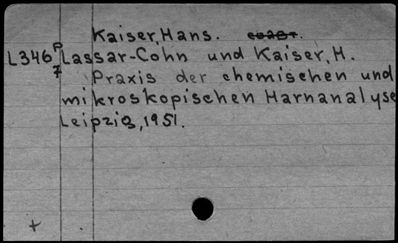 Kaiser, Hans.
L346 P Lassar-Cohn und Kaiser, H.
7 Praxis der chemischen und
mikroskopischen Harnanalyse
Leipzig, 1951.
+